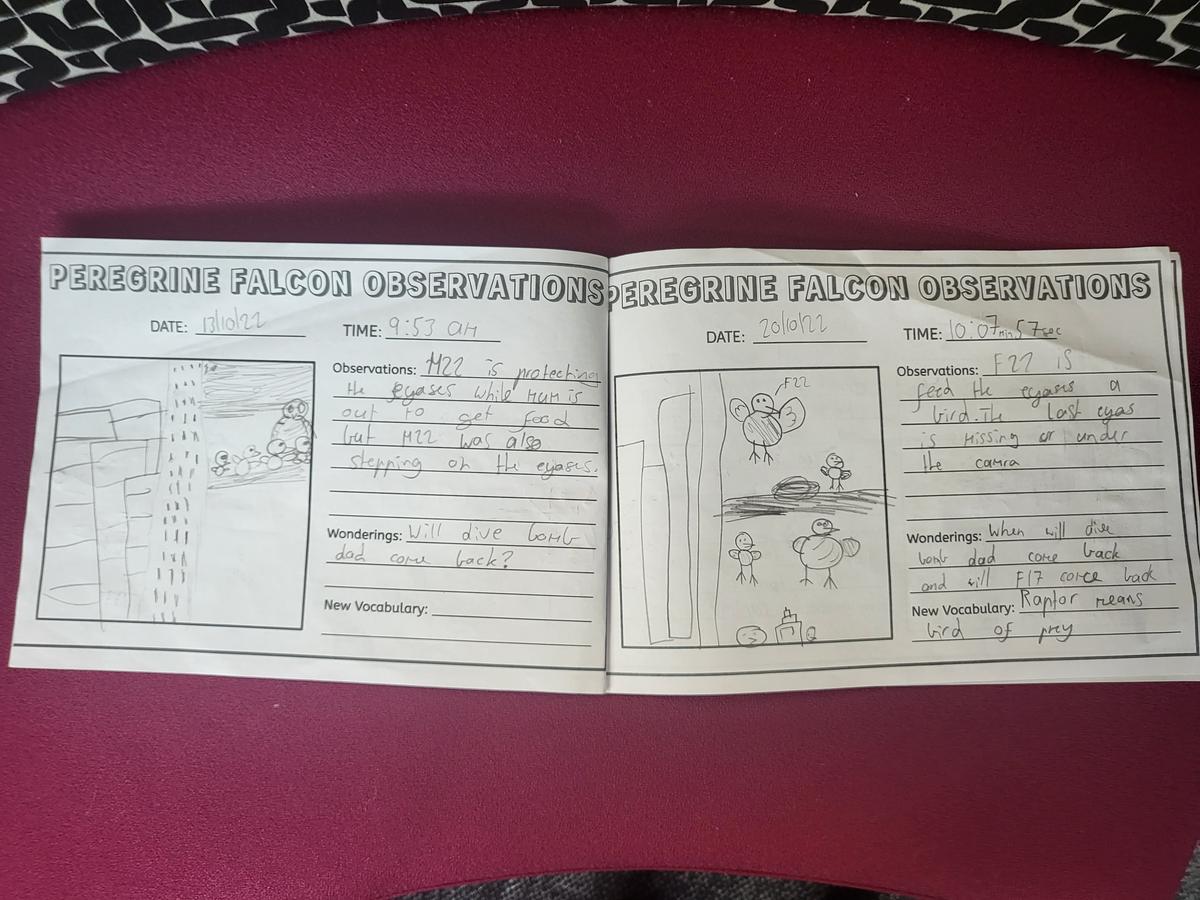 PEREGRINE FALCON OBSERVATIONS
DATE: 13/10/22 TIME: 9:53 am
Observations: M22 is protecting
the eyases while mum is
out to get food
but M22 was also
stepping on the eyases.
Wonderings: Will dive bomb
dad come back?
New Vocabulary:
PEREGRINE FALCON OBSERVATIONS
DATE: 20/10/22 TIME: 10:07min 57sec
F22
Observations: F22 is
feed the eyases a
bird. The last eyas
is missing or under
the camra
Wonderings: When will dive
bomb dad come back
and will F17 come back
New Vocabulary: Raptor means
bird of prey